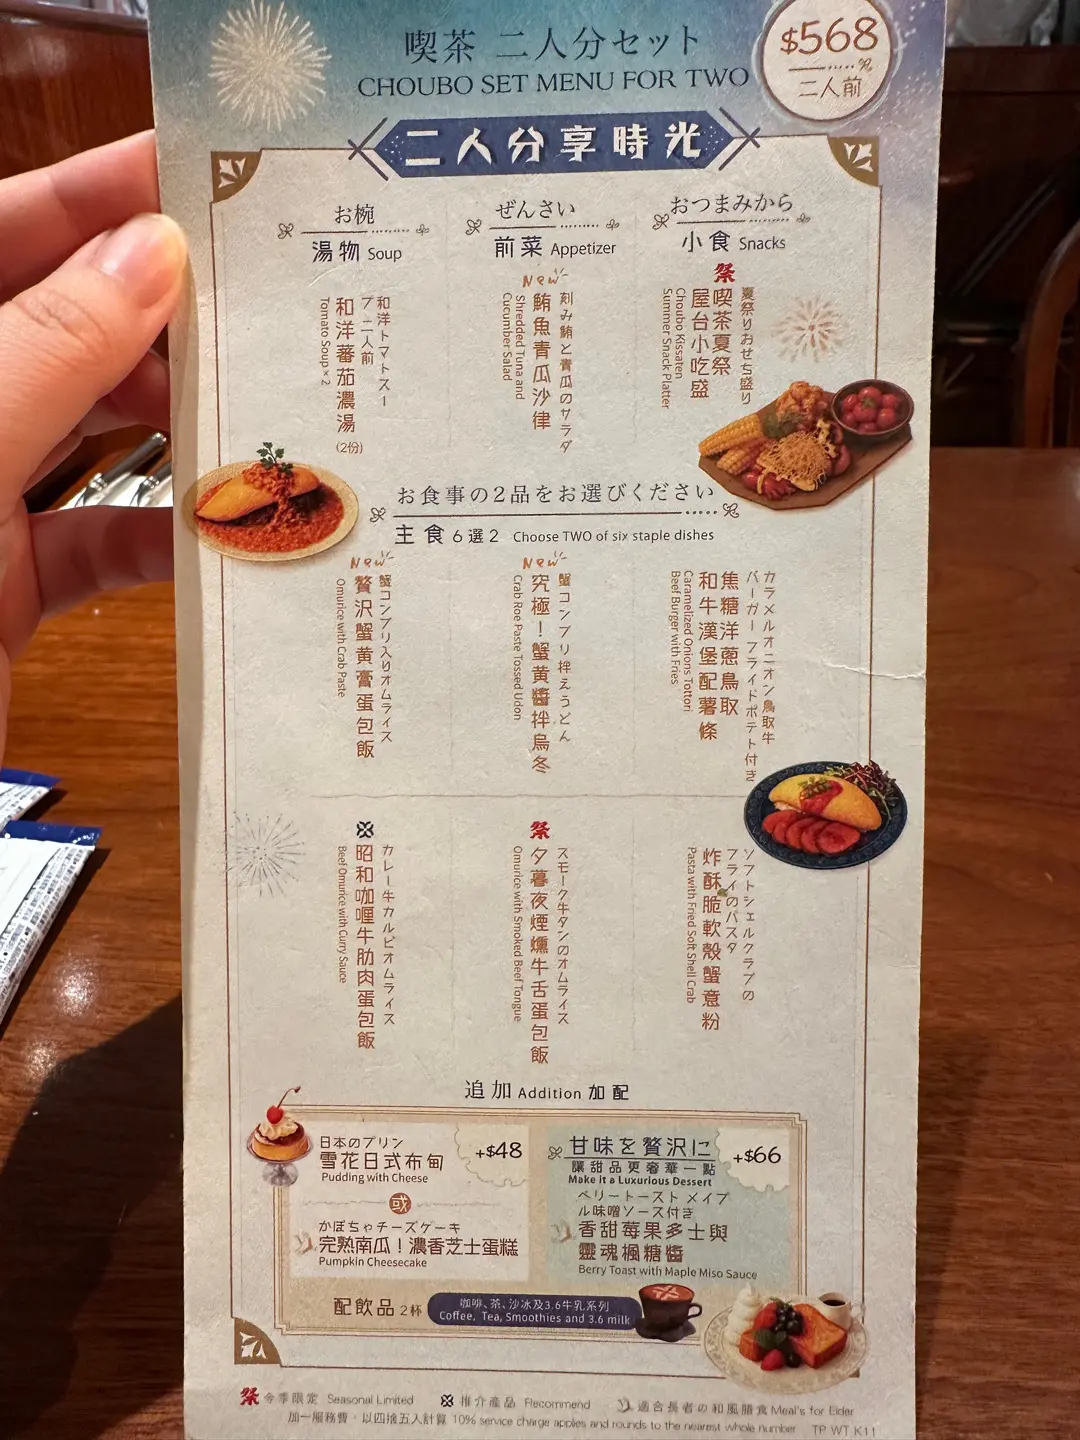 喫茶 二人分セット
CHOUBO SET MENU FOR TWO
$568
二人前
二人分享時光
お椀
湯物 Soup
和洋トマトスー
プ 二人前
和洋蕃茄濃湯
(2份)
Tomato Soup×2
ぜんさい
前菜 Appetizer
New
刻み鮪と青瓜のサラダ
鮪魚青瓜沙律
Shredded Tuna and
Cucumber Salad
おつまみから
小食 Snacks
祭
夏祭りおせち盛り
喫茶夏祭
屋台小吃盛
Choubo Kissaten
Summer Snack Platter
お食事の2品をお選びください
主食 6選2 Choose TWO of six staple dishes
New
蟹コンブリ入りオムライス
贅沢蟹黄膏蛋包飯
Omurice with Crab Paste
New
蟹コンブリ拌えうどん
究極！蟹黄醬拌烏冬
Crab Roe Paste Tossed Udon
カラメルオニオン鳥取牛
バーガー フライドポテト付き
焦糖洋蔥鳥取
和牛漢堡配薯條
Caramelized Onions Tottori
Beef Burger with Fries
カレー牛カルビオムライス
昭和咖喱牛肋肉蛋包飯
Beef Omurice with Curry Sauce
祭
スモーク牛タンのオムライス
夕暮夜煙燻牛舌蛋包飯
Omurice with Smoked Beef Tongue
ソフトシェルクラブの
フライのパスタ
炸酥脆軟殼蟹意粉
Pasta with Fried Soft Shell Crab
追加 Addition 加配
日本のプリン
雪花日式布甸
Pudding with Cheese
+$48
或
かぼちゃチーズケーキ
完熟南瓜！濃香芝士蛋糕
Pumpkin Cheesecake
甘味を贅沢に
讓甜品更奢華一點
Make it a Luxurious Dessert
+$66
ベリートースト メイプ
ル味噌ソース付き
香甜莓果多士與
靈魂楓糖醬
Berry Toast with Maple Miso Sauce
配飲品 2杯
咖啡、茶、沙冰及3.6牛乳系列
Coffee, Tea, Smoothies and 3.6 milk
祭 今季限定 Seasonal Limited 推介產品 Recommend 適合長者の和風膳食 Meal's for Elder
加一服務費，以四捨五入計算 10% service charge applies and rounds to the nearest whole number TP WT K11